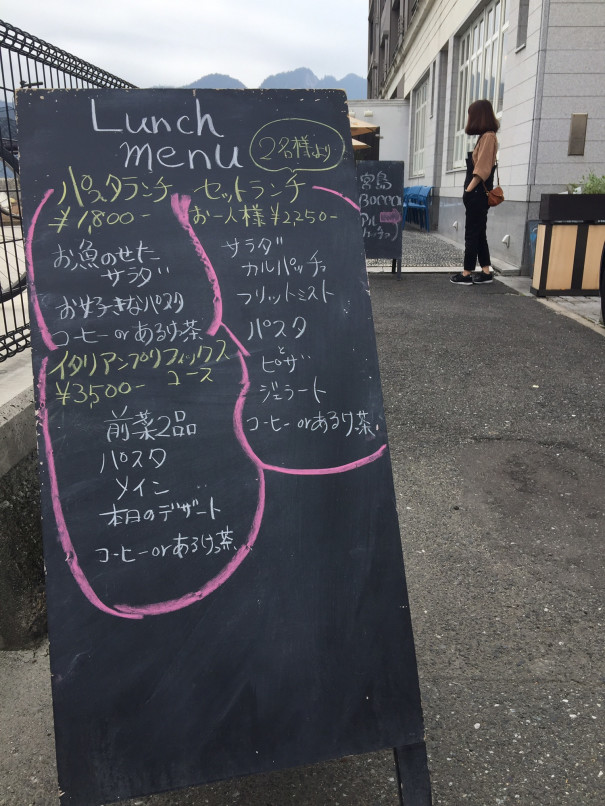 Lunch
menu
2名様より
パスタランチ
¥1,800-
お魚のせた
サラダ
お好きなパスタ
コーヒー orあるけ茶
セットランチ
お一人様¥2,250-
サラダ
カルパッチョ
フリットミスト
パスタ
と
ピザ
ジェラート
コーヒー orあるけ茶
イタリアンプリフィックス
コース
¥3,500-
前菜2品
パスタ
メイン
本日のデザート
コーヒーorあるけ茶
宮島
Bocca
アル